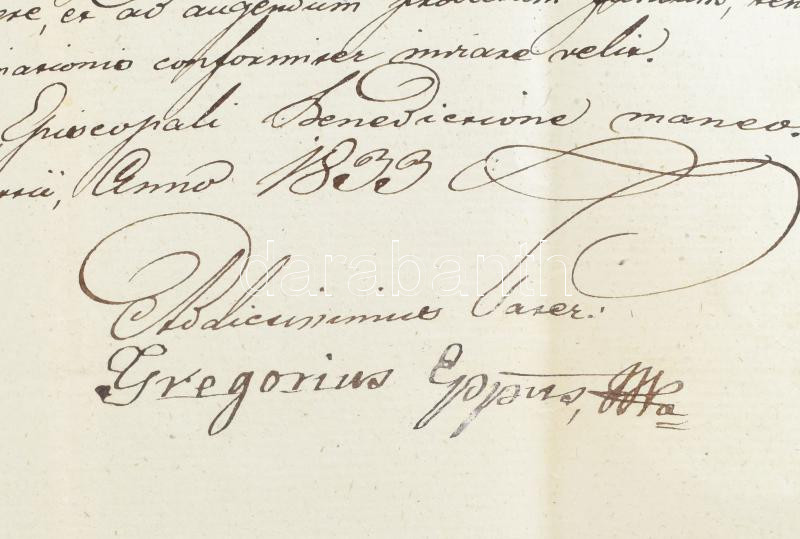 et ad augendum
conformiter intrare velit.
Episcopali Benedictione maneo.
Anno 1833
Addictissimus Pater:
Gregorius Eppus,
darabanth